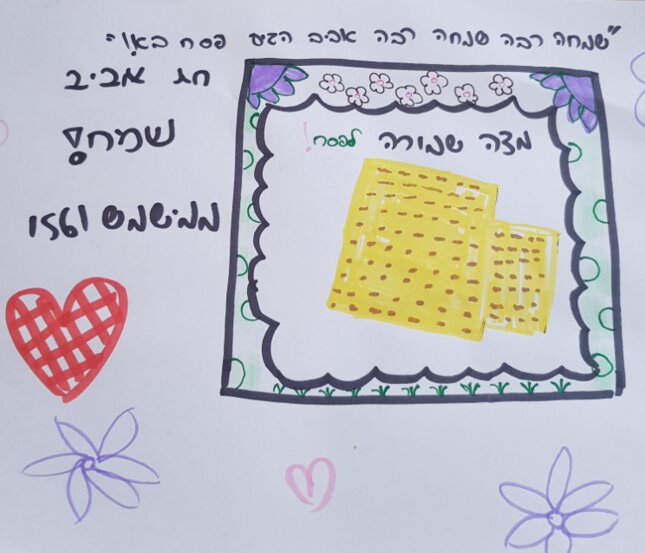 "שמחה רבה שמחה רבה אביב הגיע פסח בא!"
חג אביב
שמח!
ממישמש
מצה שמורה לפסח!